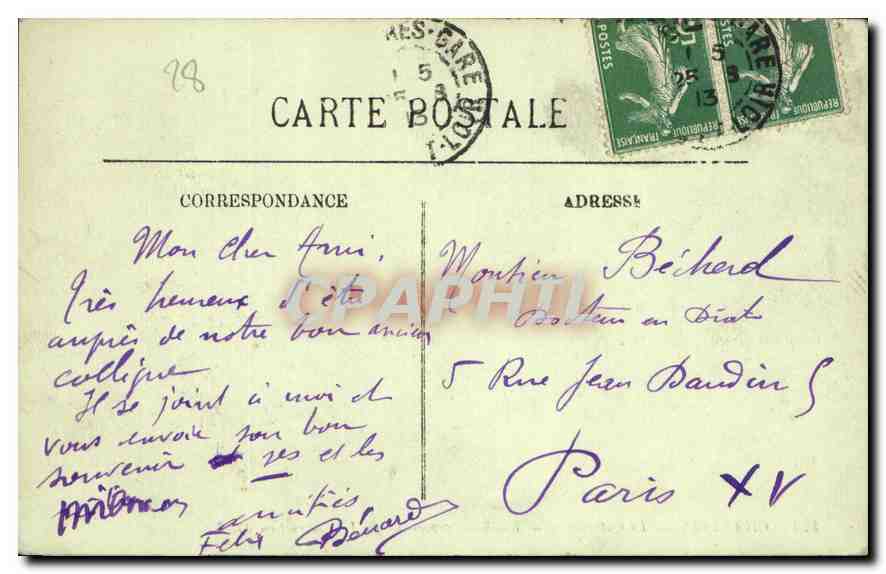 28
RES-GARE
1 5
25 8
13
T-LOIR
POSTES
RÉPUBLIQUE FRANÇAISE
POSTES
RÉPUBLIQUE
GARE
1 5
25 8
13
CARTE POSTALE
CORRESPONDANCE
ADRESSE
Mon cher Ami,
très heureux d'être
auprès de notre bon ancien
collègue
Il se joint à moi et
vous envoie son bon
souvenir et ses et les
amitiés
Félix Bénard
Monsieur Béchard
Docteur en Droit
5 Rue Jean Daudin 5
Paris XV
CPAPHIL